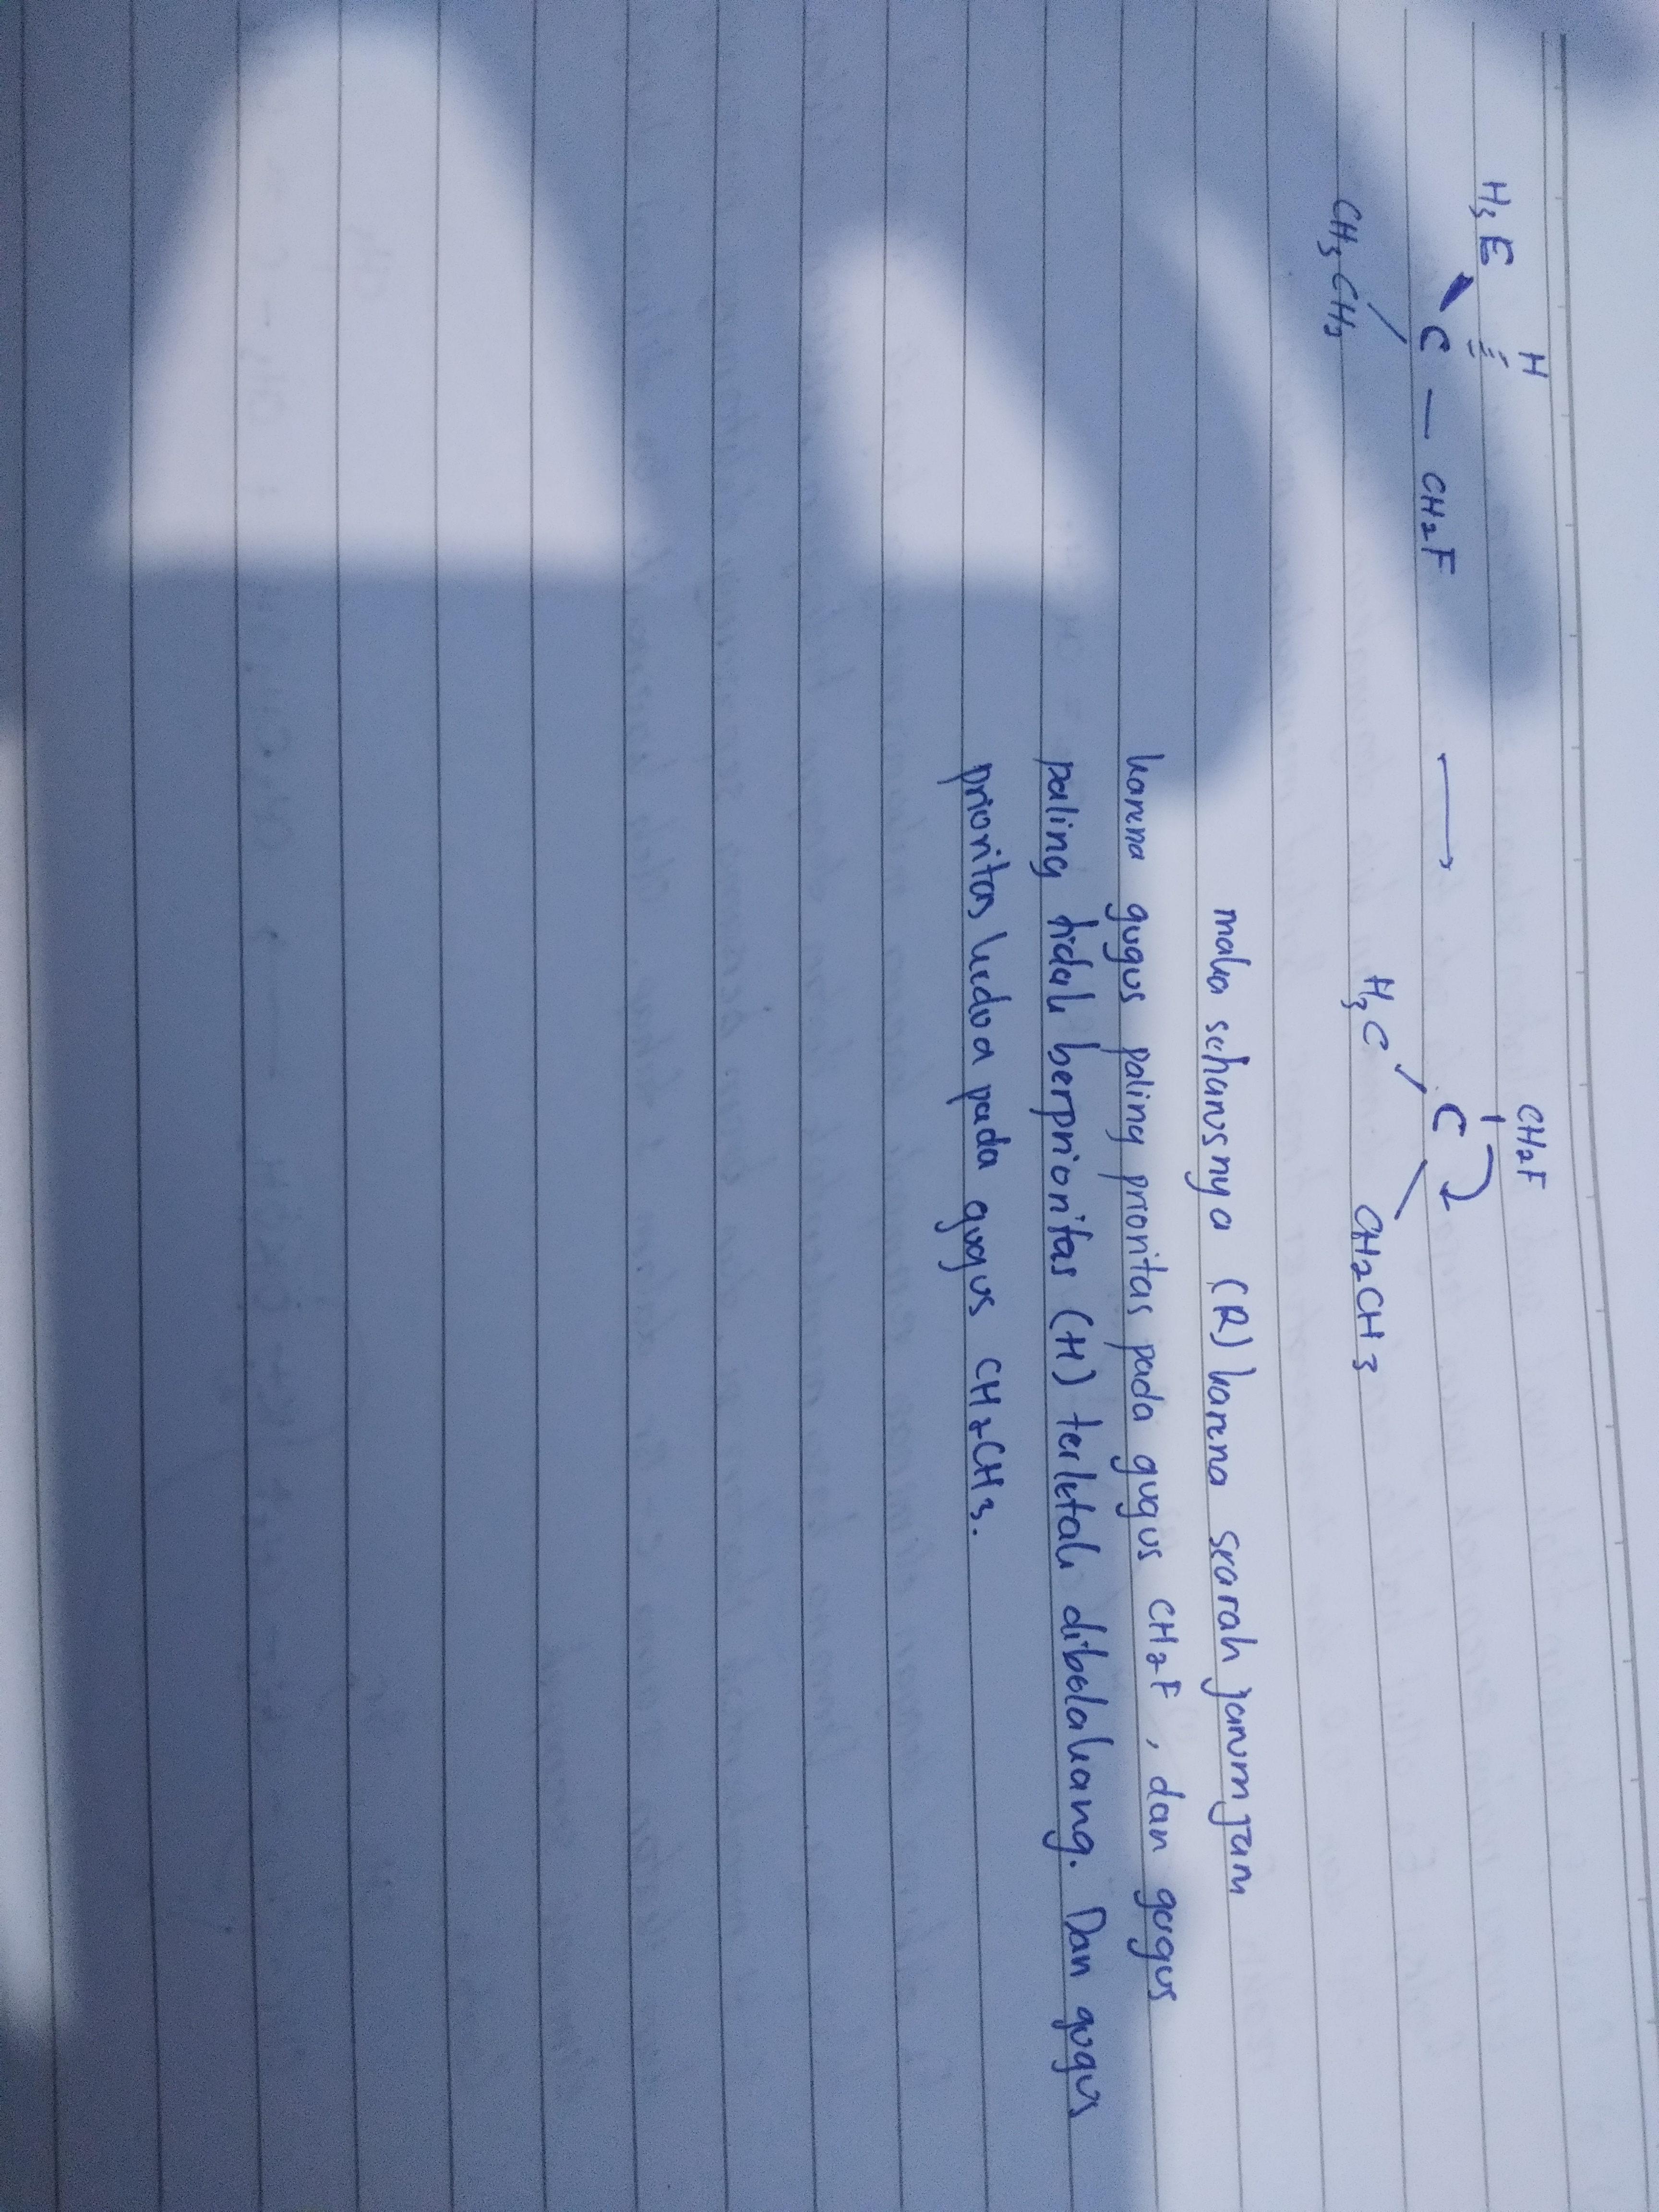 H
H₃C C — CH₂F ⟶
CH₃CH₂
CH₂F
C
H₃C CH₂CH3
maka seharusnya (R) karena searah jarum jam
karena gugus paling prioritas pada gugus CH₂F , dan gugus
paling tidak berprioritas (H) terletak dibelakang. Dan gugus
prioritas kedua pada gugus CH₂CH3.